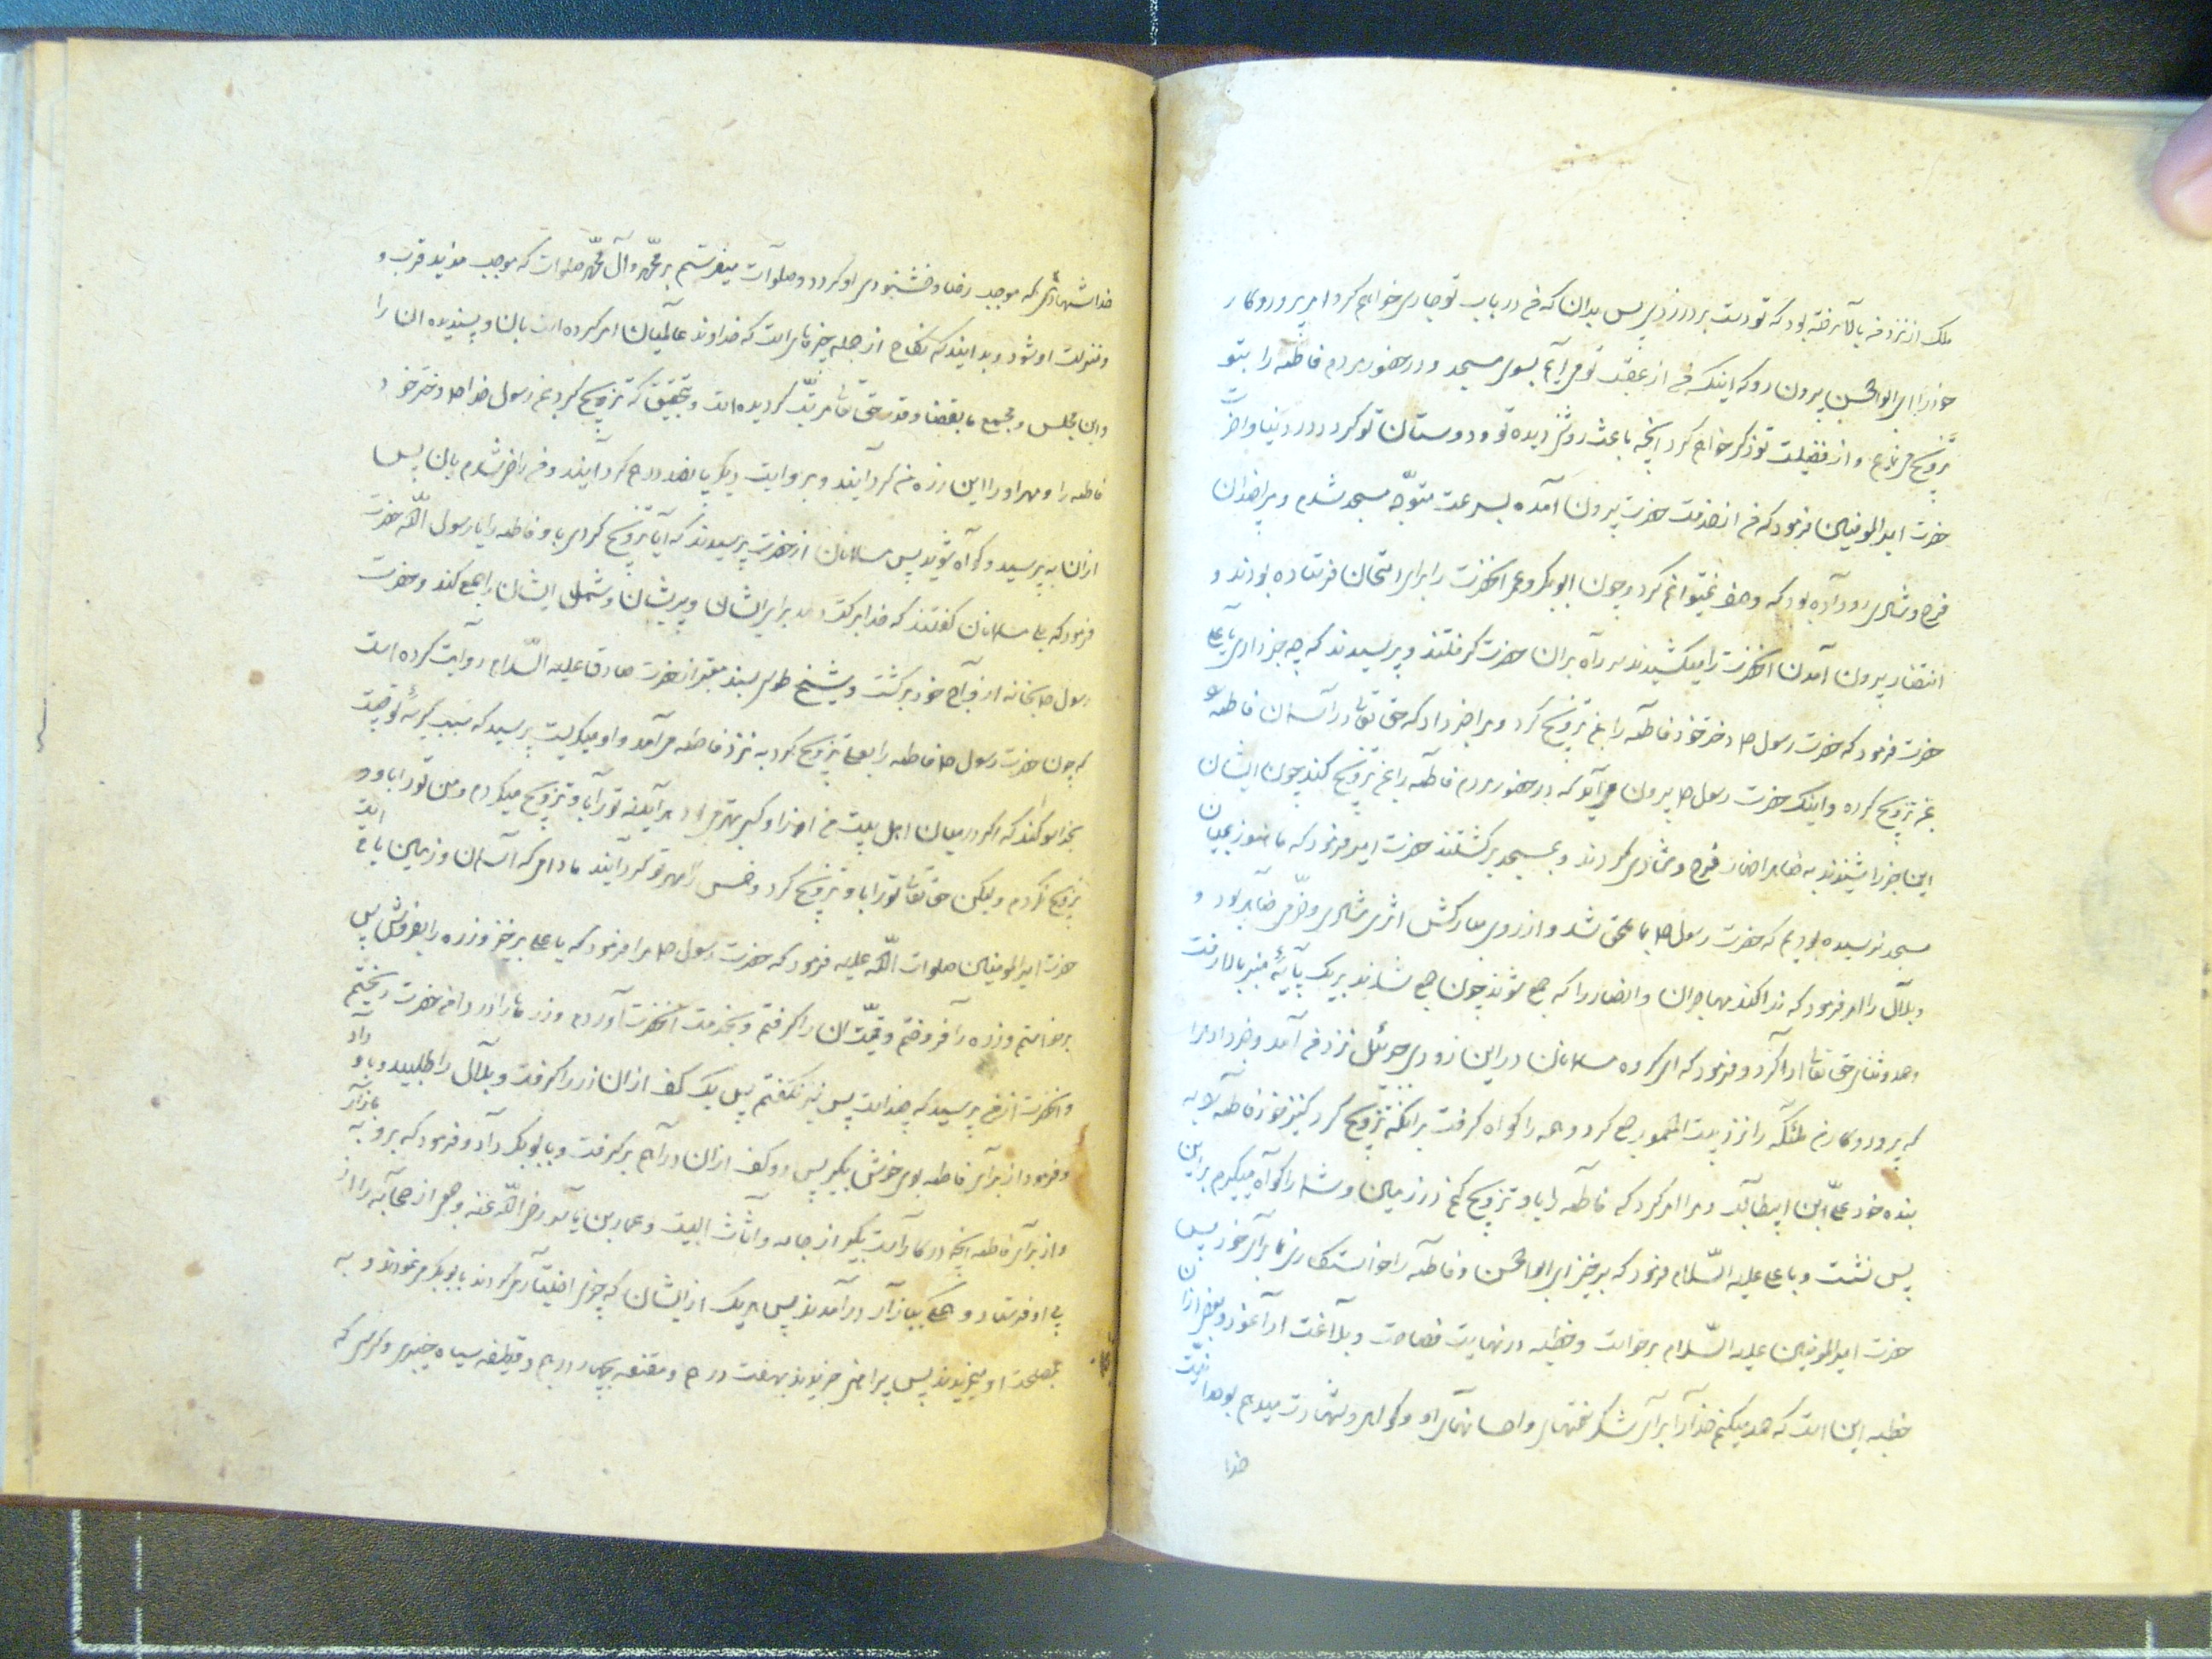 ملک از نزد من بالا نرفته بود که تو دست بر در زدی پس بدان که من در باب تو جاری خواهم کرد امر پروردکار
خود را ای ابوالحسن بیرون رو که اینک من از عقب تو می آیم بسوی مسجد و در حضور مردم فاطمه را بتو
تزویج می نمایم و از فضیلت تو ذکر خواهم کرد آنچه باعث روشنی دیده تو و دوستان تو کردد در دنیا و آخرت
حضرت امیر المومنین فرمود که من از خدمت حضرت بیرون آمده بسرعت متوجّه مسجد شدم و مرا چندان
فرح و شادی رو داده بود که وصف نمیتوانم کرد و چون ابوبکر و عمر آنحضرت را برای امتحان فرستاده بودند و
انتظار بیرون آمدن آنحضرت را میکشیدند سر راه بر آن حضرت کرفتند و پرسیدند که چه خبر داری یا علی
حضرت فرمود که حضرت رسول ص دختر خود فاطمه را بمن تزویج کرد و مرا خبر داد که حق تعالی در آسمان فاطمه را
بمن تزویج کرده و اینک حضرت رسول ص بیرون می آید که در حضور مردم فاطمه را بمن تزویج کند چون ایشان
این خبر را شنیدند بظاهر اظهار فرح و شادی کردند و بمسجد برکشتند حضرت امیر فرمود که ما هنوز بمیان
مسجد نرسیده بودیم که حضرت رسول ص بما ملحق شد و از روی مبارکش اثر شادی و خرّمی ظاهر بود و
و بلال را امر فرمود که ندا کند مهاجران و انصار را که جمع شوند چون جمع شدند بر یک پایهٔ منبر بالا رفت
و حمد و ثنای حق تعالی ادا کرد و فرمود که ای کروه مسلمانان در این زودی جبرئیل نزد من آمد و خبر داد مرا
که پروردکار من ملائکه را نزد بیت المعمور جمع کرد و همه را کواه کرفت بر آنکه تزویج کرد کنیز خود فاطمه را به
بنده خود علی ابن ابیطالب و مرا امر کرد که فاطمه را باو تزویج کنم در زمین و شما را کواه میکیرم بر این
پس نشست و با علی علیه السّلام فرمود که برخیز ای ابوالحسن و فاطمه را خواستکاری نما برای خود پس
حضرت امیر المومنین علیه السّلام برخواست و خطبه در نهایت فصاحت و بلاغت ادا نمود و بعضی از آن
خطبه این است که حمد میکنم خدا را برای شکر نعمتهای و احسانهای او و کواهی و شهادت میدهم بوحدانیّت
خدا
خدا شهادتی که موجب رضا و خشنودی او کردد و صلوات میفرستم بر محمّد و آل محمّد صلوات که موجب مزید قرب و
و منزلت او شود و بدانید که نکاح از جمله چیزهائی است که خداوند عالمیان امر کرده است بآن و پسندیده آن را
و این مجلس و مجمع ما بقضا و قدر حق تعالی مرتّب کردیده است و بتحقیق که تزویج کرد بمن رسول خدا ص دختر خود
فاطمه را و مهر او را این زره من کردانید و بروایت دیکر پانصد درهم کردانید و من راضی شدم بآن پس
از آن به پرسید و کواه شوید پس مسلمانان از حضرت پرسیدند که آیا تزویج کردی باو فاطمه را یا رسول اللّه حضرت
فرمود که بلی مسلمانان کفتند که خدا برکت دهد برای ایشان و پریشان و شمل ایشان را جمع کند و حضرت
رسول ص بخانه ازواج خود برکشت و شیخ طوسی بسند معتبر از حضرت صادق علیه السّلام روایت کرده است
که چون حضرت رسول ص فاطمه را بعلی تزویج کرد به نزد فاطمه در آمد و او میکریست پرسید که سبب کریهٔ تو چیست
بخدا سوکند که اکر در میان اهل بیت من از او کسی بهتر می بود هر آینه ترا باو تزویج میکردم و من تو را باو
تزویج نکردم و لیکن حق تعالی تو را باو تزویج کرد و خمس را مهر تو کردانید مادام که آسمان و زمین باقی است
حضرت امیر المومنین صلوات اللّه علیه فرمود که حضرت رسول ص مرا فرمود که یا علی برخیز و زره را بفروش پس
برخواستم و زره را فروختم و قیمت آن را کرفتم و بخدمت آنحضرت آوردم و زرها را در دامن حضرت ریختم
و آنحضرت از من پرسید که چند است پس نیز نکفتم پس یک کف از آن زر را کرفت و بلال را طلبید و باو داد
و فرمود از برای فاطمه بوی خوش بکیر پس دو کف از آن دراهم بر کرفت و بابوبکر داد و فرمود که برو به بازار
و از برای فاطمه آنچه در کار است بکیر از جامه و اثاث البیت و عمار بن یاسر رضی اللّه عنه و جمعی از صحابه را از
پی او فرستاد و همکی ببازار در آمدند پس هر یک از ایشان که چیزی اختیار می کردند بابوبکر می نمودند و به
بمصلحت او میخریدند پس پیراهنی خریدند بهفت درهم و مقنعه بچهار درهم و قطیفه سیاه خیبری و کرسی که